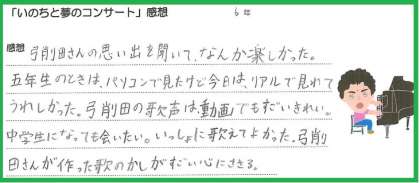 「いのちと夢のコンサート」感想 6年
感想 弓削田さんの思い出を聞いて、なんか楽しかった。
五年生のときは、パソコンで見たけど今日は、リアルで見れて
うれしかった。弓削田の歌声は動画でもすごいきれい。
中学生になっても会いたい。いっしょに歌えてよかった。弓削
田さんが作った歌のかしがすごい心にささる。